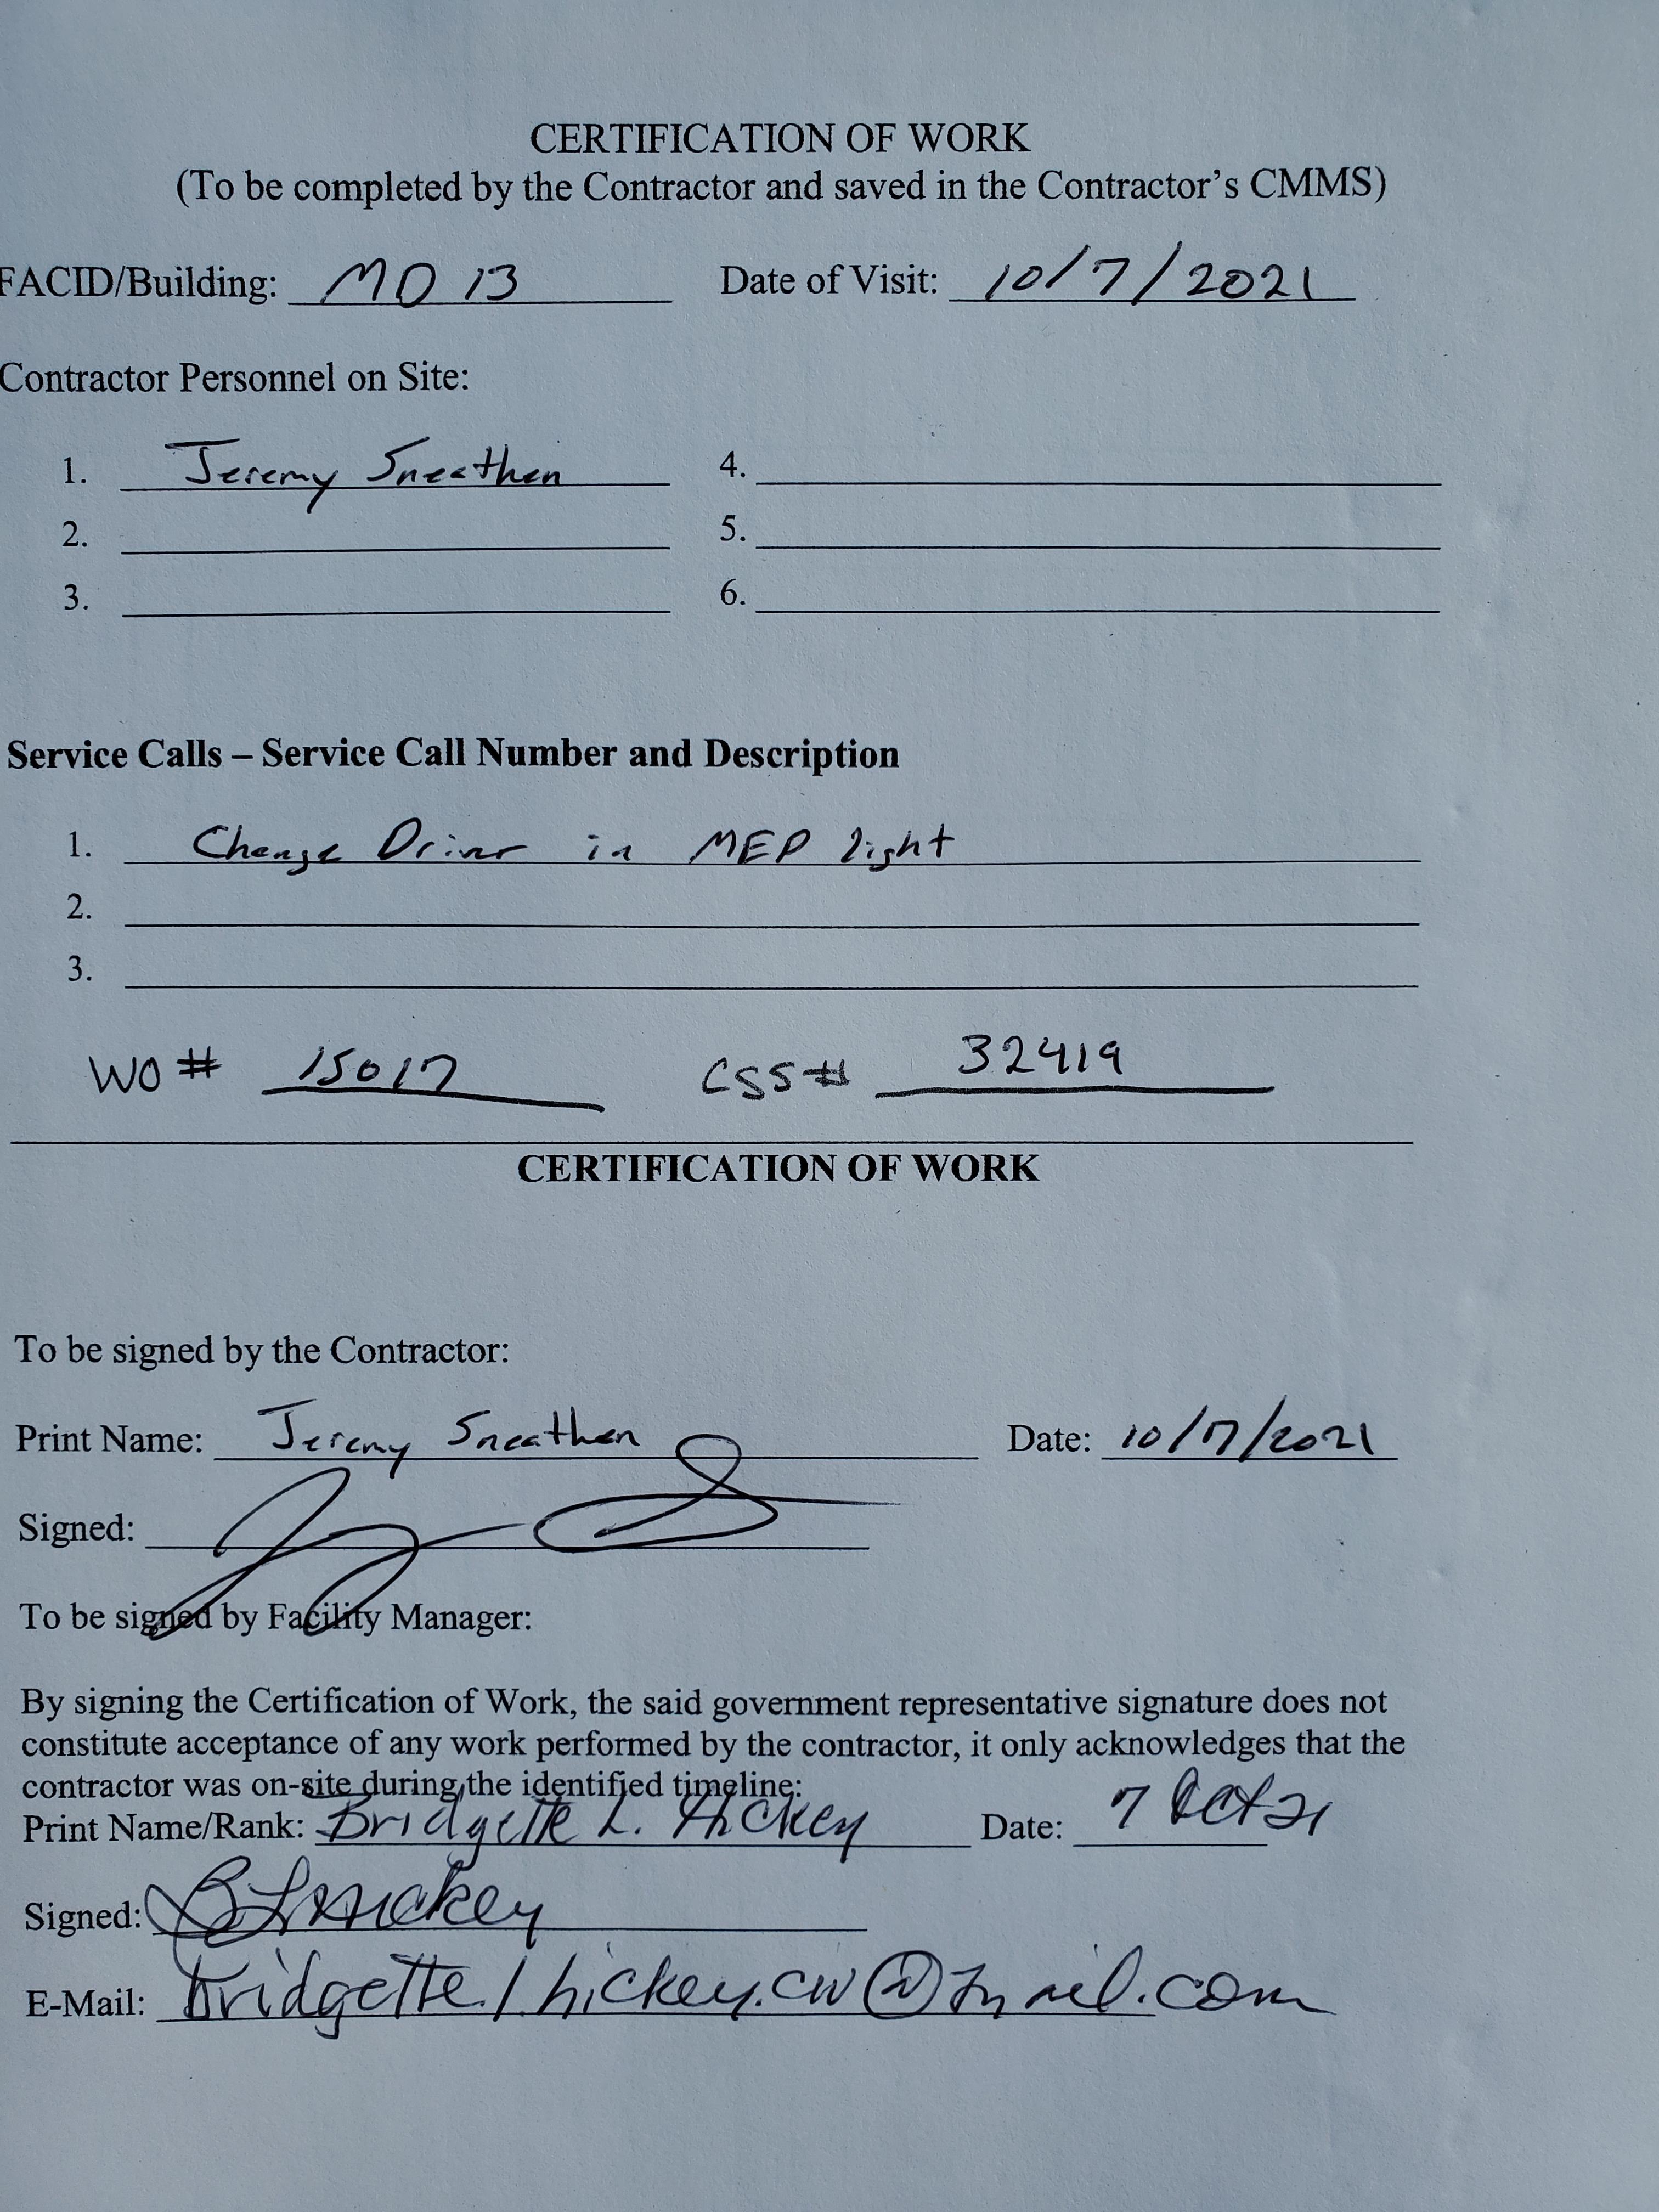 CERTIFICATION OF WORK
(To be completed by the Contractor and saved in the Contractor's CMMS)
FACID/Building: MO 13 Date of Visit: 10/7/2021
Contractor Personnel on Site:
1. Jeremy Sneathen 4.
2. 5.
3. 6.
Service Calls – Service Call Number and Description
1. Change Driver in MEP light
2.
3.
WO # 15017 CSS# 32419
CERTIFICATION OF WORK
To be signed by the Contractor:
Print Name: Jeremy Sneathen Date: 10/7/2021
Signed:
To be signed by Facility Manager:
By signing the Certification of Work, the said government representative signature does not
constitute acceptance of any work performed by the contractor, it only acknowledges that the
contractor was on-site during the identified timeline:
Print Name/Rank: Bridgette L. Hickey Date: 7 Oct 21
Signed: BLHickey
E-Mail: